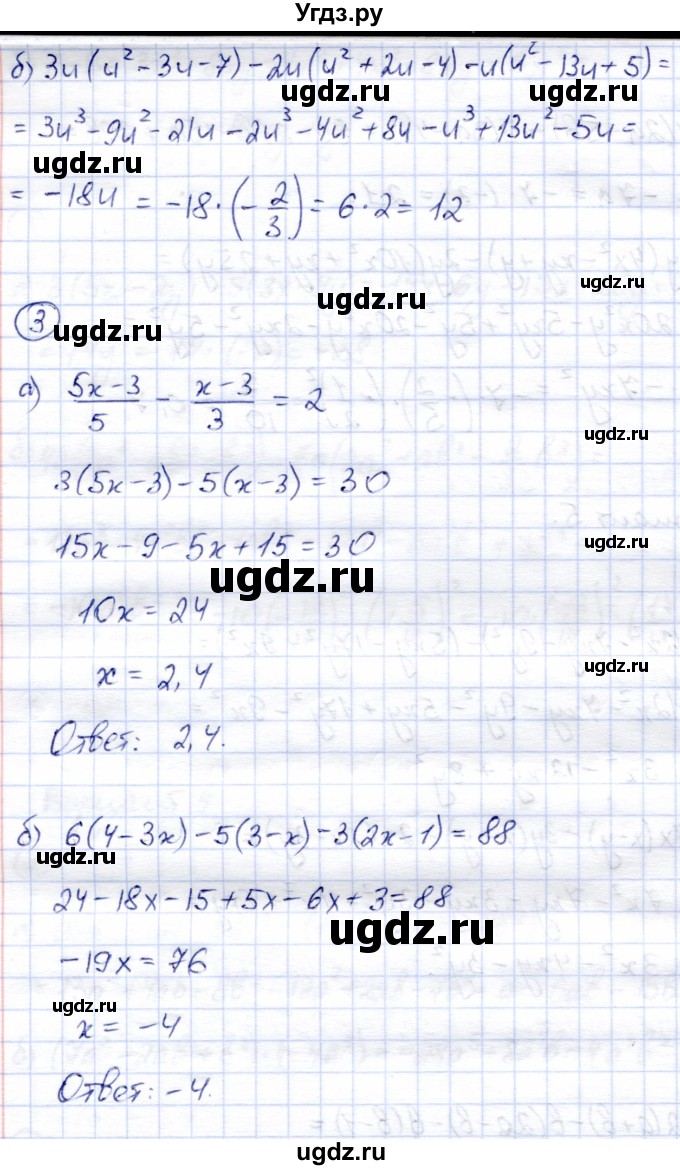 Угдз.ру
б) 3u(u² - 3u - 7) - 2u(u² + 2u - 4) - u(u² - 13u + 5) =
ugdz.ru ugdz.ru
= 3u³ - 9u² - 21u - 2u³ - 4u² + 8u - u³ + 13u² - 5u =
ugdz.ru ugdz.ru
= -18u = -18 · (-2/3) = 6 · 2 = 12
ugdz.ru
3
ugdz.ru
а) (5x-3)/5 - (x-3)/3 = 2
ugdz.ru
3(5x-3) - 5(x-3) = 30
15x - 9 - 5x + 15 = 30
ugdz.ru
ugdz.ru
10x = 24
x = 2,4
ugdz.ru
Ответ: 2,4.
б) 6(4-3x) - 5(3-x) - 3(2x-1) = 88
ugdz.ru
24 - 18x - 15 + 5x - 6x + 3 = 88
ugdz.ru
-19x = 76
ugdz.ru
x = -4
Ответ: -4.
ugdz.ru
ugdz.ru